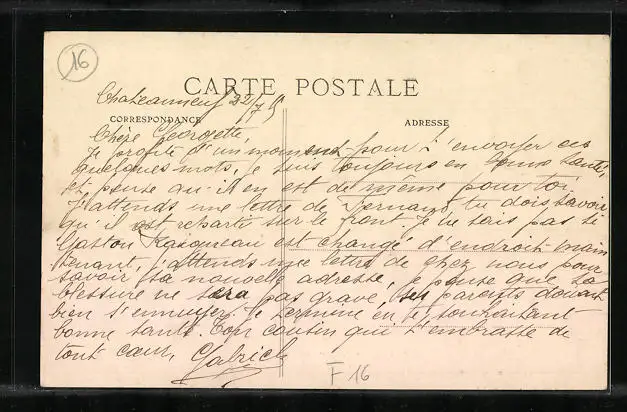 16
CARTE POSTALE
Chateauneuf 22/7 15
CORRESPONDANCE
ADRESSE
Chère Georgette,
Je profite d'un moment pour t'envoyer ces
quelques mots, je suis toujours en bonne santé,
et pense qu'il en est de même pour toi.
J'attends une lettre de Fernand, tu dois savoir
qu'il est reparti sur le front. Je ne sais pas si
Gaston est changé d'endroit main
tenant, j'attends une lettre de chez nous pour
savoir sa nouvelle adresse, je pense que sa
blessure ne sera pas grave, ses parents doivent
bien s'ennuyer. Je termine en te souhaitant
bonne santé. Ton cousin qui t'embrasse de
tout cœur,
F 16